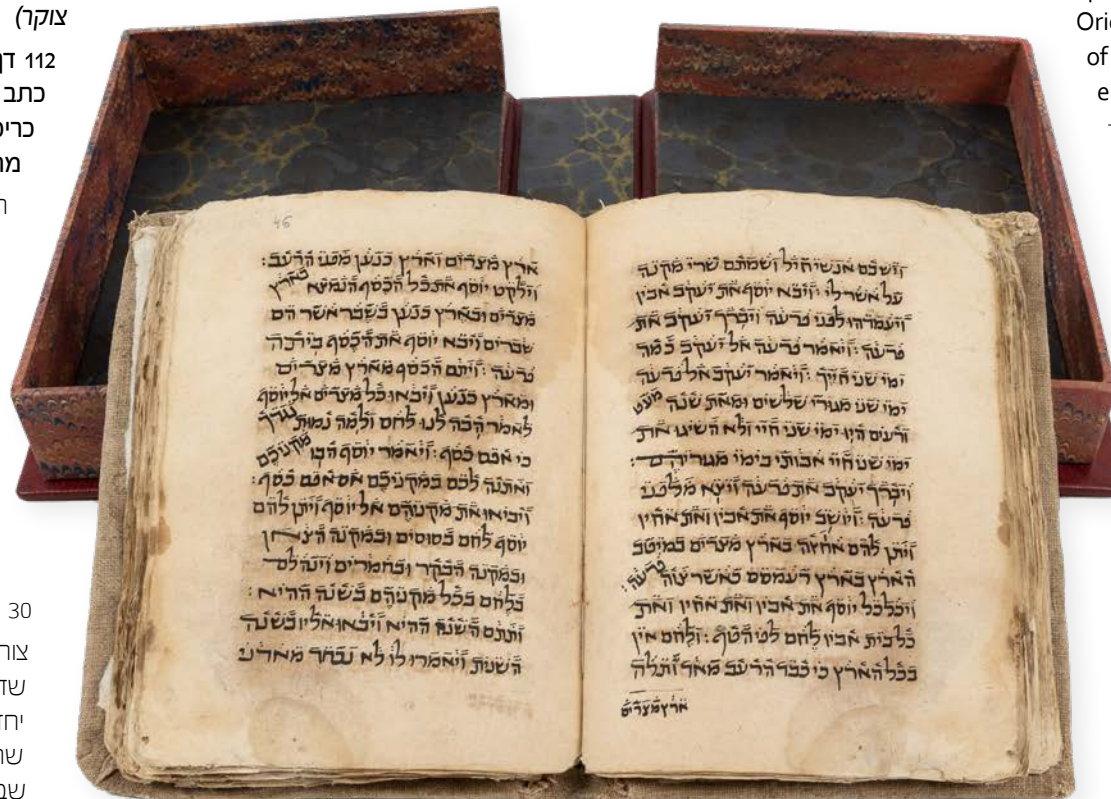 צוקר)
112 דף
כתב
of
ויש בם אנשי חיל ושמתם שרי מקנה
על אשר לי : ויבא יוסף את יעקב אביו
ויעמדהו לפני פרעה ויברך יעקב את
פרעה : ויאמר פרעה אל יעקב כמה
ימי שני חייך : ויאמר יעקב אל פרעה
ימי שני מגורי שלשים ומאת שנה מעט
ורעים היו ימי שני חיי ולא השיגו את
ימי שני חיי אבותי בימי מגוריהם :
ויברך יעקב את פרעה ויצא מלפני
פרעה : ויושב יוסף את אביו ואת אחיו
ויתן להם אחזה בארץ מצרים במיטב
הארץ בארץ רעמסס כאשר צוה פרעה :
ויכלכל יוסף את אביו ואת אחיו ואת
כל בית אביו לחם לפי הטף : ולחם אין
בכל הארץ כי כבד הרעב מאד ותלה
ארץ מצרים
46
ארץ מצרים וארץ כנען מפני הרעב :
וילקט יוסף את כל הכסף הנמצא בארץ
מצרים ובארץ כנען בשבר אשר הם
שברים ויבא יוסף את הכסף ביתה
פרעה : ויתם הכסף מארץ מצרים
ומארץ כנען ויבאו כל מצרים אל יוסף
לאמר הבה לנו לחם ולמה נמות נגדך
כי אפס כסף : ויאמר יוסף הבו מקניכם
ואתנה לכם במקניכם אם אפס כסף :
ויביאו את מקניהם אל יוסף ויתן להם
יוסף לחם בסוסים ובמקנה הצאן
ובמקנה הבקר ובחמרים וינהלם
בלחם בכל מקניהם בשנה ההיא :
ותתם השנה ההיא ויבאו אליו בשנה
השנית ויאמרו לו לא נכחד מאדני
30